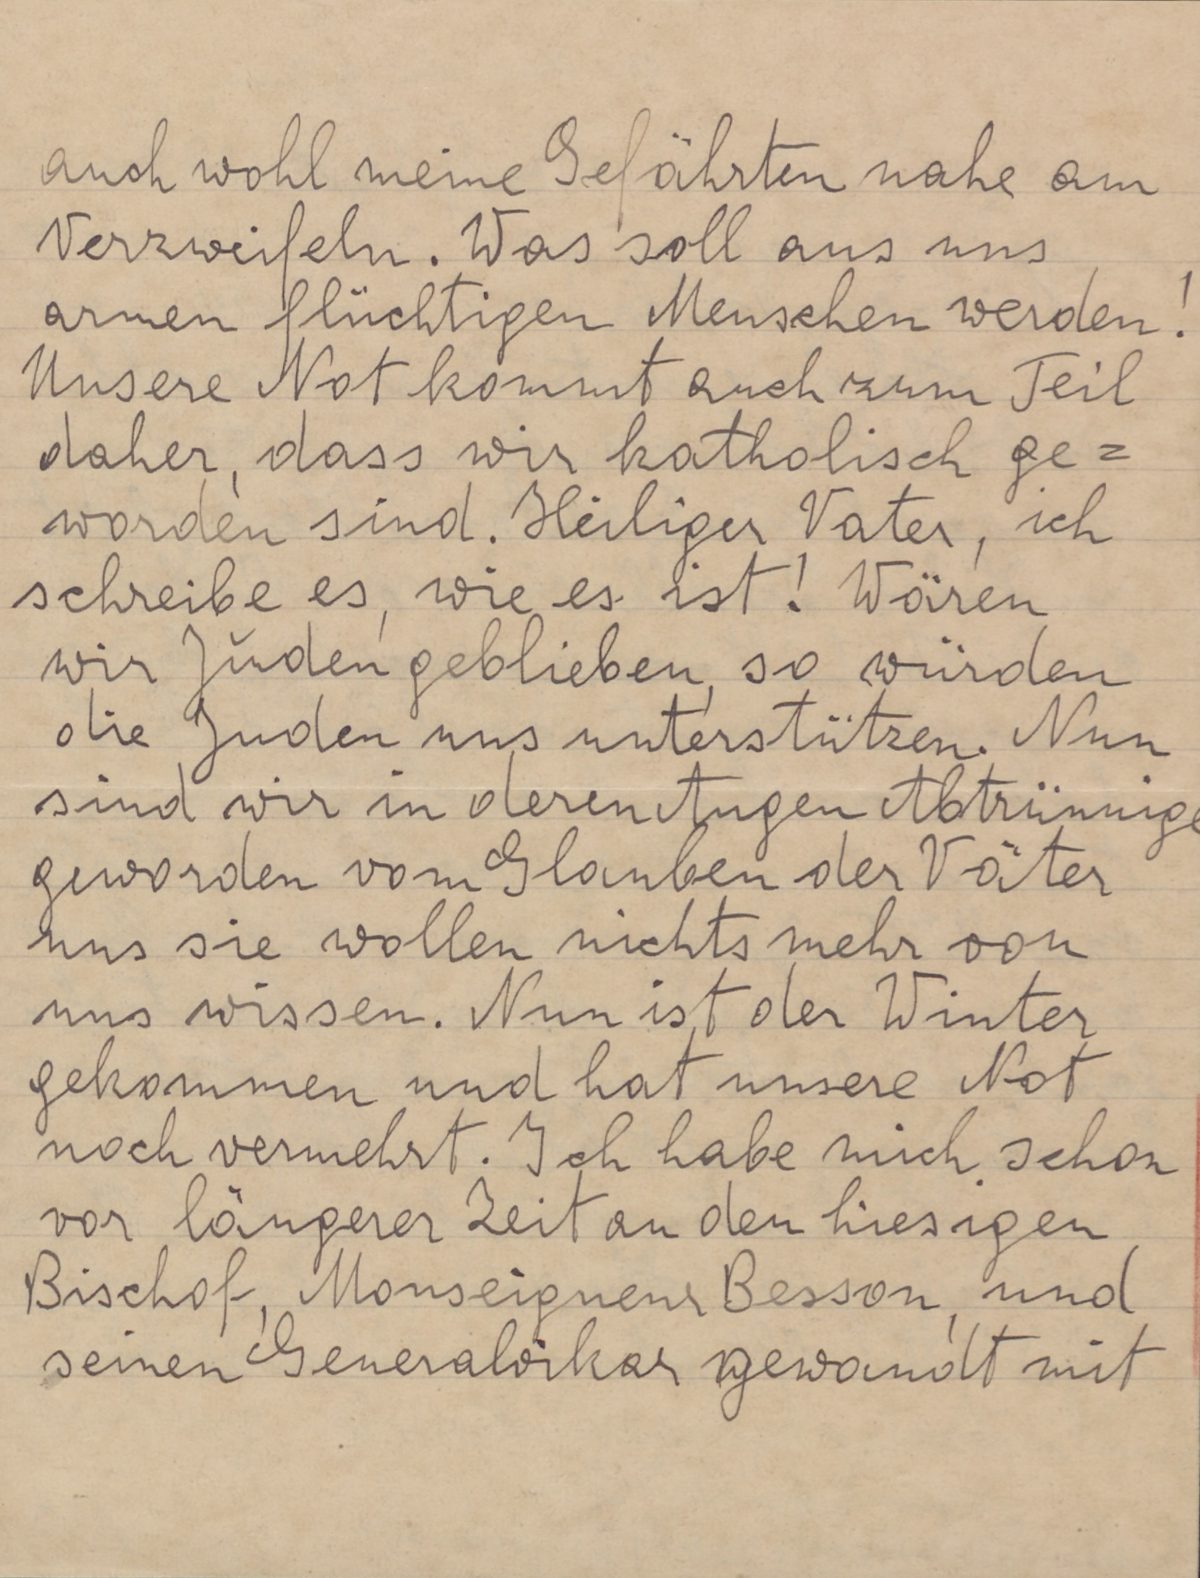 auch wohl meine Gefährten nahe am
Verzweifeln. Was soll aus uns
armen flüchtigen Menschen werden!
Unsere Not kommt auch zum Teil
daher, dass wir katholisch ge=
worden sind. Heiliger Vater, ich
schreibe es, wie es ist! Wären
wir Juden geblieben, so würden
die Juden uns unterstützen. Nun
sind wir in deren Augen Abtrünnige
geworden vom Glauben der Väter
uns sie wollen nichts mehr von
uns wissen. Nun ist der Winter
gekommen und hat unsere Not
noch vermehrt. Ich habe mich schon
vor längerer Zeit an den hiesigen
Bischof, Monseigneur Besson, und
seinen Generalvikar gewandt mit